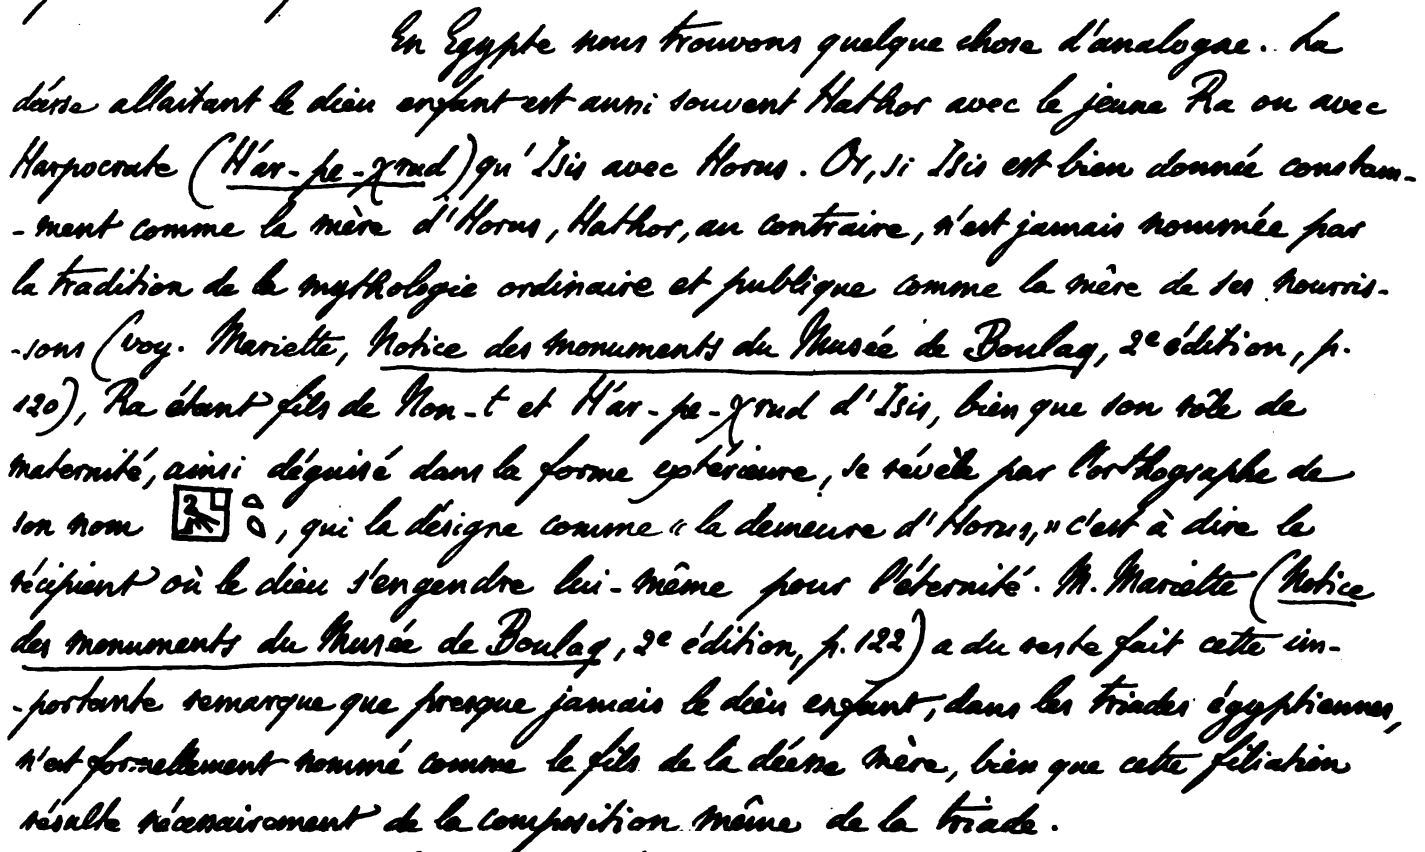 En Egypte nous trouvons quelque chose d'analogue. La
déesse allaitant le dieu enfant est aussi souvent Hathor avec le jeune Ra ou avec
Harpocrate (H'ar-pe-χrud) qu'Isis avec Horus. Or, si Isis est bien donnée constam-
-ment comme la mère d'Horus, Hathor, au contraire, n'est jamais nommée par
la tradition de la mythologie ordinaire et publique comme la mère de ses nourris-
-sons (voy. Mariette, Notice des monuments du Musée de Boulaq, 2e édition, p.
120), Ra étant fils de Nou-t et H'ar-pe-χrud d'Isis, bien que son rôle de
maternité, ainsi déguisé dans la forme extérieure, se révèle par l'orthographe de
son nom , qui la désigne comme « la demeure d'Horus, » c'est à dire le
récipient où le dieu s'engendre lui-même pour l'éternité. M. Mariette (Notice
des monuments du Musée de Boulaq, 2e édition, p. 122) a du reste fait cette im-
-portante remarque que presque jamais le dieu enfant, dans les triades égyptiennes,
n'est formellement nommé comme le fils de la déesse mère, bien que cette filiation
résulte nécessairement de la composition même de la triade.